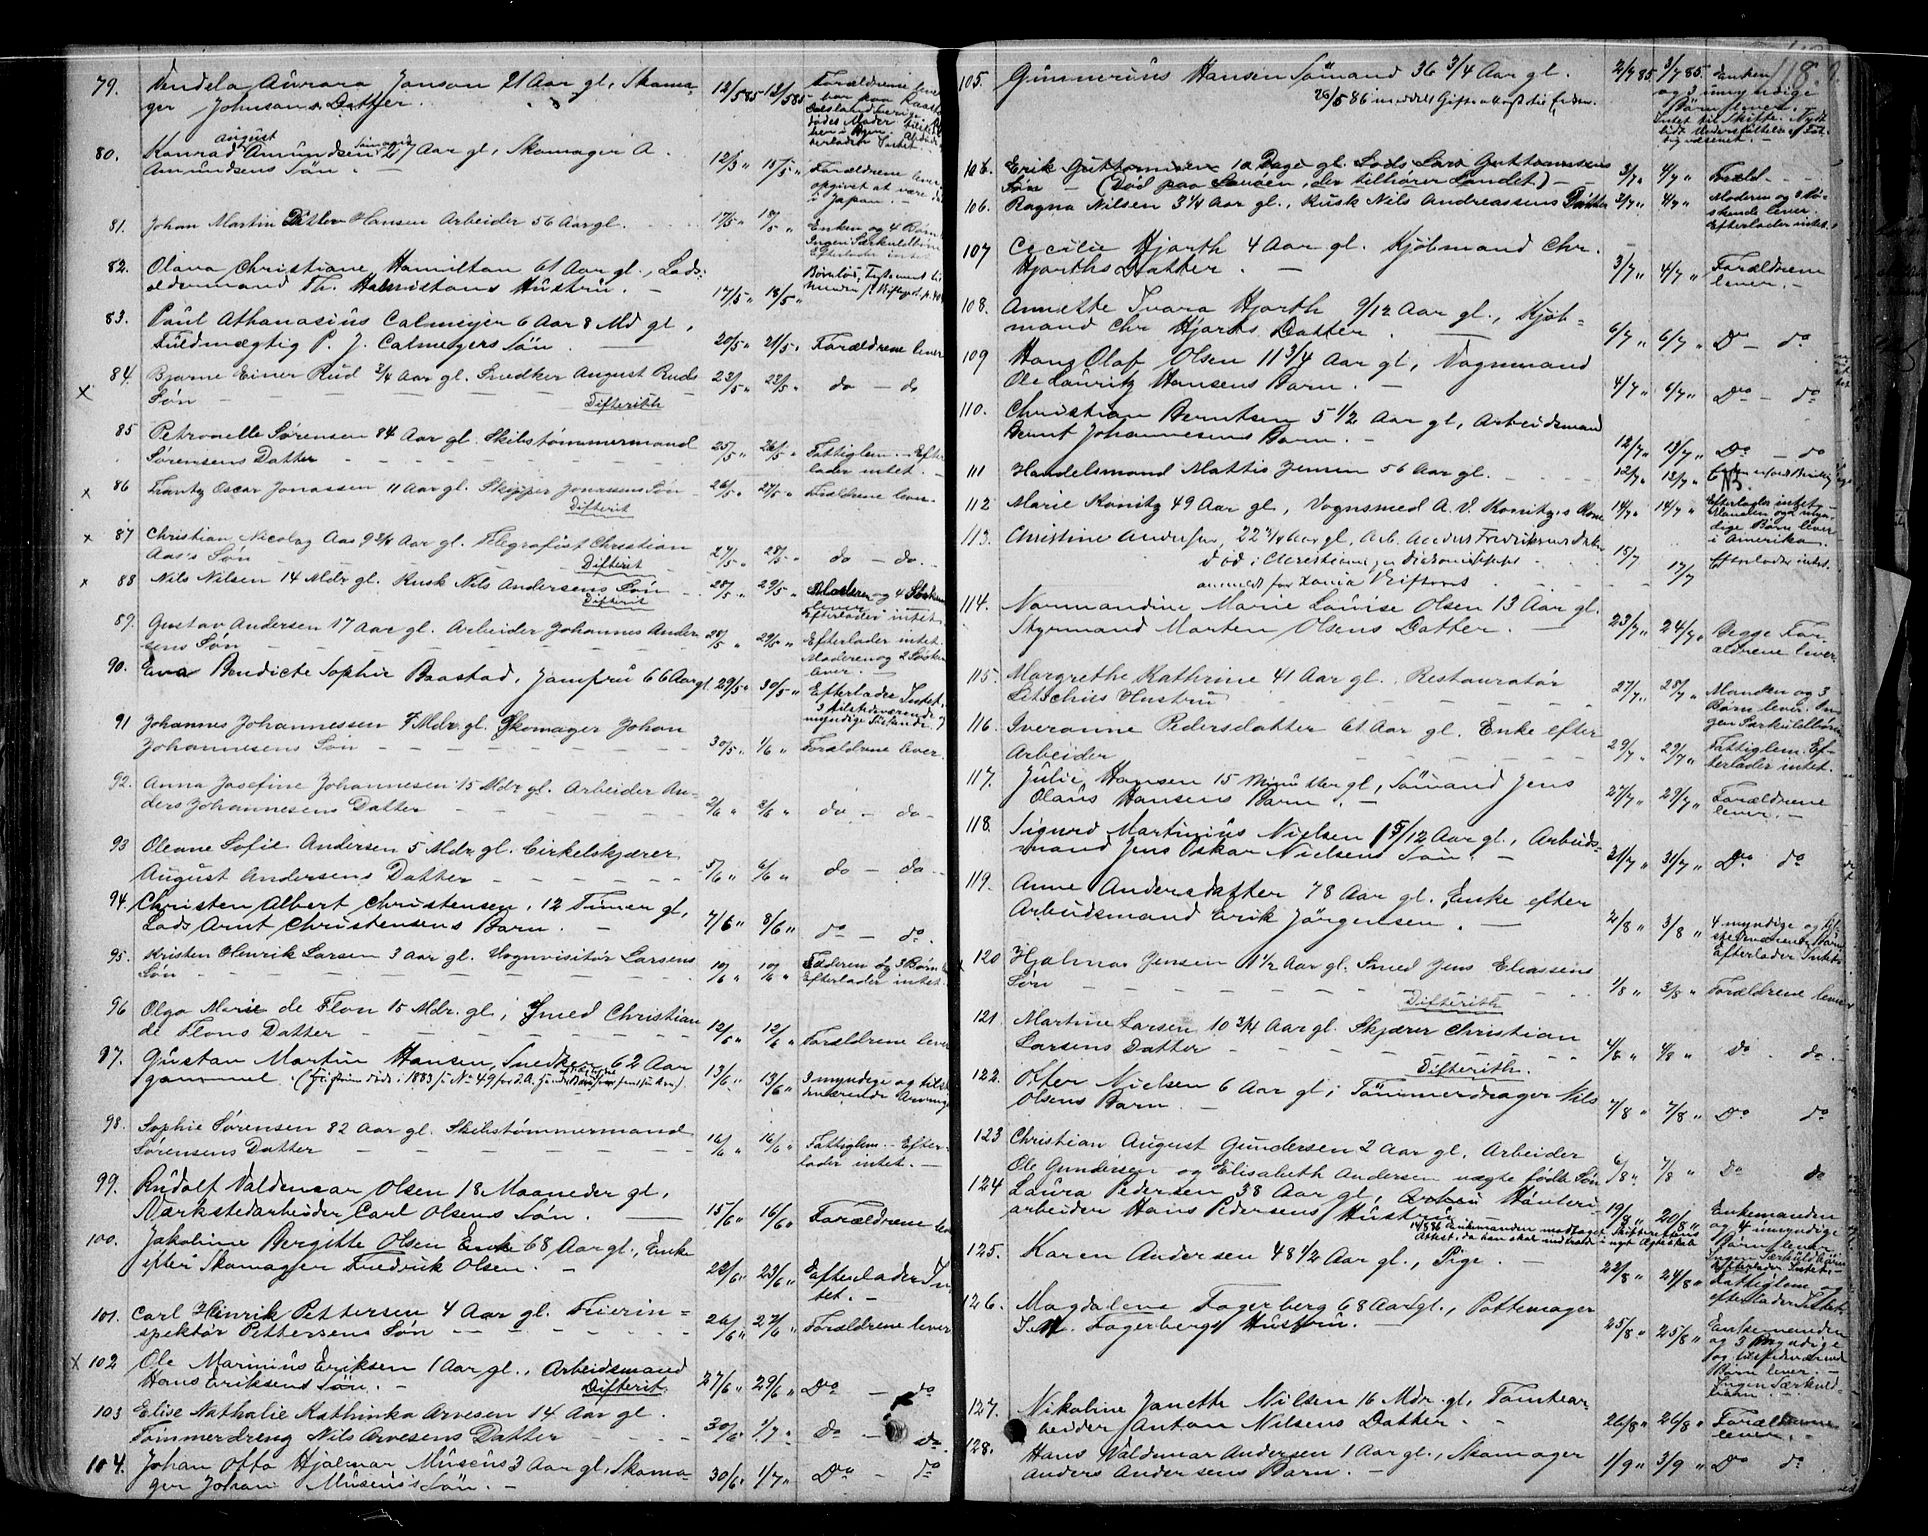 79. Vendela Aurora Jonson 21 Aar gl, Skoma-
ger Johnsons Datter. 12/5 85 12/5 85 Forældrene lever
80. Konrad August Amundsen Sømand 27 Aar gl, Skomager A.
Amundsens Søn. - 12/3 " 15/5 " Forældrene lever
opgivet at være død
i Japan. -
81. Johan Martin Ditlev Hansen Arbeider 56 Aar gl. 17/5 " 18/5 " Enken og 4 Børn
Ingen Særkuldbørn
Efterlader intet
82. Olava Christiane Hamilton 61 Aar gl., Lods-
oldermand Th. Hamiltons Hustru. - 17/5 " 18/5 " Barnløs, Testament
83. Paul Athanasius Calmeyer 6 Aar 8 Md gl,
Fuldmægtig P. J. Calmeyers Søn. 20/5 " 21/5 " Forældrene lever
x 84. Bjarne Einer Rud 3/4 Aar gl. Snedker August Ruds
Søn - Difterith 22/5 " 23/5 " do - do
85 Petronelle Sørensen 84 Aar gl. Skibstømmermand
Sørensens Datter - 25/5 " 26/5 " Fattiglem. - Efter-
lader intet. -
x 86 Frantz Oscar Jonassen 11 Aar gl. Skipper Jonassens Søn - 26/5 " 27/5 " Forældrene lever -
Difterit
x 87 Christian Nicolay Aas 9 3/4 Aar gl. Telegrafist Christian
Aas's Søn - Difterit 27/5 " 28/5 " do - do. -
x 88 Nils Nilsen 14 Mdr gl. Kusk Nils Andersens Søn - 28/5 " 29/5 " Moderen og 4 Søskende
Difterit lever
Efterlader intet
89. Gustav Andersen 17 Aar gl. Arbeider Johannes Ander-
sens Søn - 28/5 " 29/5 " Efterlader intet.
Moderen og 2 Søsken
lever. -
90. Eva Bendicte Sophie Baastad, Jomfru 66 Aar gl. 29/5 " 30/5 " Efterlader Intet,
3 tilstedeværende
myndige Søskende.
91 Johannes Johannessen 7 Mdr. gl. Skomager Johan
Johannesens Søn - 30/5 " 1/6 " Forældrene lever.
92. Anna Josefine Johannesen 15 Mdr gl. Arbeider An-
ders Johannesens Datter - 2/6 " 2/6 " do - do -
93 Oleane Sofie Andersen 5 Mdr. gl. Cirkelskjærer
August Andersens Datter - 5/6 " 6/6 " do - do -
94. Christen Albert Christensen, 12 Timer gl,
Lods Arnt Christensens Barn. - 7/6 " 8/6 " do - do.
95. Kristen Henrik Larsen 3 Aar gl. Vognvisitør Larsens
Søn - 10/6 " 10/6 " Faderen og 3 Børn
Efterlader intet.
96 Olga Marie de Flon 15 Mdr. gl, Smed Christian
de Flons Datter - 12/6 " 12/6 " Forældrene lever
97. Gustav Martin Hansen, Snedker 62 Aar
gammel. 13/6 " 13/6 " 3 myndige og tilste-
deværende Arvinger
98. Sophie Sørensen 82 Aar gl. Skibstømmermand
Sørensens Datter - 16/6 " 16/6 " Fattiglem. - Efter-
lader intet. -
99. Rudolf Valdemar Olsen 18 Maaneder gl,
Værkstedarbeider Carl Olsens Søn. - 15/6 " 16/6 " Forældrene lev
100. Jakoline Bergitte Olsen Enke 68 Aar gl., Enke
efter Skomager Fredrik Olsen. - 22/6 " 23/6 " Efterlader In-
tet. -
101. Carl Henrik Pettersen 4 Aar gl. Feierin-
spektør Pettersens Søn - 26/6 " 27/6 " Forældrene lever
x 102 Ole Marinius Eriksen 1 Aar gl., Arbeidsmand
Hans Eriksens Søn. - Difterit. 27/6 " 29/6 " Do - do
103 Elise Nathalie Kathinka Arvesen 14 Aar gl.
Tømmerdreng Nils Arvesens Datter - 30/6 " 1/7 " Do - Do.
104. Johan Otto Hjalmar Musæus 3 Aar gl, Skoma-
ger Johan Musæus's Søn. - 30/6 " 1/7 " Do - do
118.
105. Gunnerius Hansen Sømand 36 3/4 Aar gl. 2/7 85 3/7 85. Enken
og 3 umyndige
26/5 86 meddelt Gifteattest til Enken. Børn lever.
Intet til Skifte. Nydt
lidt Understøttelse af Fat-
tigvæsenet. -
106. Erik Guttormsen 10 Dage gl. Lods Lars Guttormsens
Søn - (Død paa Sauøen, der tilhører Landet) - 3/7 " 4/7 " Foræld. -
106. Ragna Nilsen 3 1/4 Aar gl., Kusk Nils Andreassens Datter 2/7 " 4/7 " Moderen og 3 Sø-
skende lever.
Efterlader intet.
107 Cecilie Hjorth 4 Aar gl. Kjøbmand Chr.
Hjorths Datter. - 3/7 " 4/7 " Forældrene
lever. -
108. Annette Tvara Hjorth 9/12 Aar gl., Kjøb-
mand Chr Hjorts Datter. - 6/7 " 6/7 " Do - do
109 Hans Olaf Olsen 11 3/4 Aar gl, Vognmand
Ole Lauritz Hansens Barn. - 4/7 " 6/7 " Do - do
110. Christian Berntsen 5 1/2 Aar gl, Arbeidsmand
Bernt Johannesens Barn. - 12/7 " 13/7 " Do - do
111 Handelsmand Mattis Jensen 56 Aar gl. 12/7 " 13/7 "
112 Marie Konitz 49 Aar gl, Vognsmed A. V. Konitz's Kone 14/7 " 14/7 " Efterlader intet
Manden og 2 myn-
dige Børn lever
i Amerika.
113. Christine Andersen, 22 3/4 Aar gl, Arb. Anders Fredriksens Datter
død i Christiania 15/7 17/7 Efterlader intet.
114. Normandine Marie Louise Olsen 13 Aar gl.
Styrmand Morten Olsens Datter. - 23/7 " 24/7 " Begge For-
ældrene lever
115. Margrethe Kathrine 41 Aar gl. Restauratør
Hustru - 27/7 " 28/7 " Manden og 3
Børn lever. In-
gen Særkuldbørn
116. Iveranne Pedersdatter 61 Aar gl. Enke efter
Arbeider 29/7 " 29/7 " Fattiglem. Ef-
terlader intet.
117. Julie Hansen 15 Minutter gl, Sømand Jens
Olaus Hansens Barn. - 27/7 " 29/7 " Forældrene
lever. -
118. Sigurd Martinius Nielsen 1 5/12 Aar gl., Arbeids-
mand Jens Oskar Nielsens Søn. - 31/7 " 31/7 " Do do
119. Anne Andersdatter 78 Aar gl. Enke efter
Arbeidsmand Erik Jørgensen. - 2/8 " 3/8 " 4 myndige og til-
stedeværende Børn
efterlader Intet
120 Hjalmar Jensen 1 1/2 Aar gl. Smed Jens Eliassens
Søn - 1/8 " 3/8 " Forældrene lever
Difterith
121 Martine Larsen 10 3/4 Aar gl. Skjærer Christian
Larsens Datter - 4/8 " 4/8 " Do . do.
Difterith.
122. Otter Nielsen 6 Aar gl; Tømmerdrager Nils
Olsens Barn. - 7/8 " 7/8 " Do do
123 Christian August Gundersen 2 Aar gl. Arbeider
Ole Gundersen og Elisabeth Andersen uægte fødte Søn 6/8 " 7/8 " Do do
124 Laura Pedersen 38 Aar gl, Hønteri-
arbeider Hans Pedersens Hustru - 19/8 " 20/8 " Enkemanden
og 4 umyndige
Børn lever.
Ingen Særkuldbørn
Efterlader Intet. -
125. Karen Andersen 48 1/2 Aar gl., Pige. - 22/8 " 24/8 " Fattiglem
efterlader Intet
126. Magdalene Fagerberg 68 Aar gl., Pottemager
J. M. Fagerbergs Hustru. - 25/8 " 25/8 " Enkemanden
og 3 myndige
og tilstedeværende
Børn lever. -
Ingen Særkuld-
børn. -
127. Nikoline Janette Nilsen 16 Mdr. gl, Tomtear-
beider Anton Nilsens Datter. - 26/8 " 26/8 " Forældrene
lever. -
128. Hans Valdemar Andersen 1 Aar gl., Skomager
Anders Andersens Barn. - 1/9 " 3/9 " Do do